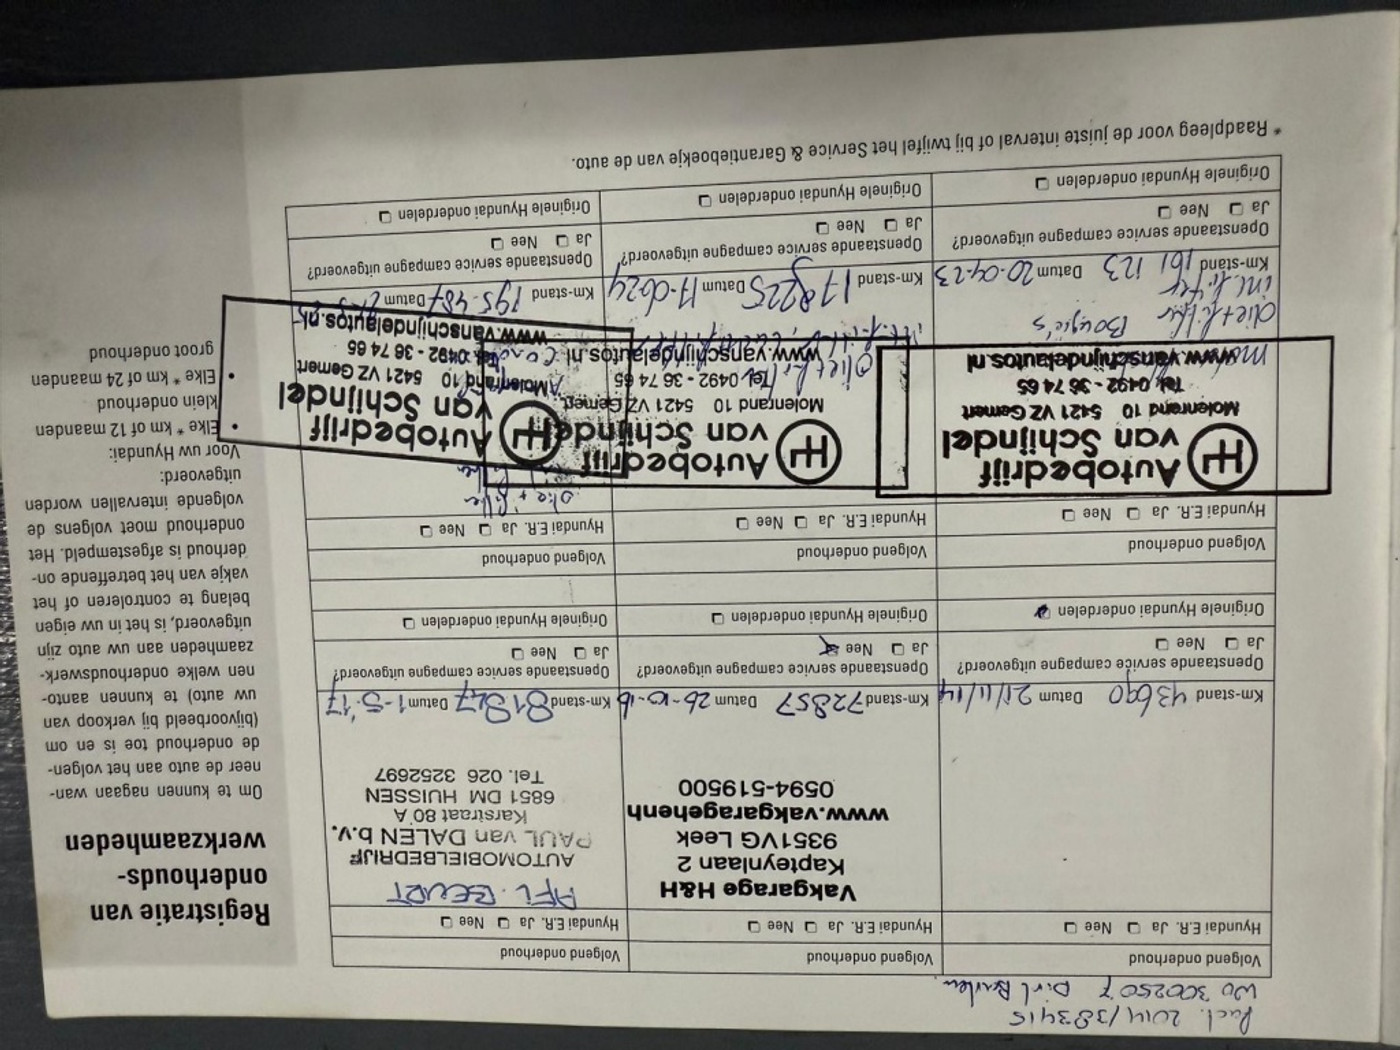 Fact. 2014/383415
WO 3002507 Dirk
Registratie van
onderhouds-
werkzaamheden
Om te kunnen nagaan wan-
neer de auto aan het volgen-
de onderhoud toe is en om
(bijvoorbeeld bij verkoop van
uw auto) te kunnen aanto-
nen welke onderhoudswerk-
zaamheden aan uw auto zijn
uitgevoerd, is het in uw eigen
belang te controleren of het
vakje van het betreffende on-
derhoud is afgestempeld. Het
onderhoud moet volgens de
volgende intervallen worden
uitgevoerd:
Voor uw Hyundai:
• Elke * km of 12 maanden
klein onderhoud
• Elke * km of 24 maanden
groot onderhoud
Volgend onderhoud
Hyundai E.R. Ja Nee
Km-stand 43690 Datum 21/11/14
Openstaande service campagne uitgevoerd?
Ja Nee
Originele Hyundai onderdelen
Volgend onderhoud
Hyundai E.R. Ja Nee
Vakgarage H&H
Kapteynlaan 2
9351VG Leek
www.vakgaragehenh
0594-519500
Km-stand 72857 Datum 26-10-16
Openstaande service campagne uitgevoerd?
Ja Nee
Originele Hyundai onderdelen
Volgend onderhoud
Hyundai E.R. Ja Nee
AFL. BEURT
AUTOMOBIELBEDRIJF
PAUL van DALEN b.v.
Karstraat 80 A
6851 DM HUISSEN
Tel. 026 3252697
Km-stand 81847 Datum 1-5-'17
Openstaande service campagne uitgevoerd?
Ja Nee
Originele Hyundai onderdelen
Volgend onderhoud
Hyundai E.R. Ja Nee
Autobedrijf
van Schijndel
Molenrand 10 5421 VZ Gemert
Tel. 0492 - 36 74 65
www.vanschijndelautos.nl
olie + filter Bougie's
Km-stand 161 123 Datum 20-04-23
Openstaande service campagne uitgevoerd?
Ja Nee
Originele Hyundai onderdelen
Volgend onderhoud
Hyundai E.R. Ja Nee
Autobedrijf
van Schijndel
Molenrand 10 5421 VZ Gemert
Tel. 0492 - 36 74 65
www.vanschijndelautos.nl
Km-stand 178225 Datum 17-06-24
Openstaande service campagne uitgevoerd?
Ja Nee
Originele Hyundai onderdelen
Volgend onderhoud
Hyundai E.R. Ja Nee
olie + filter
Autobedrijf
van Schijndel
Molenrand 10 5421 VZ Gemert
Tel. 0492 - 36 74 65
www.vanschijndelautos.nl
Km-stand 195.487 Datum
Openstaande service campagne uitgevoerd?
Ja Nee
Originele Hyundai onderdelen
* Raadpleeg voor de juiste interval of bij twijfel het Service & Garantieboekje van de auto.